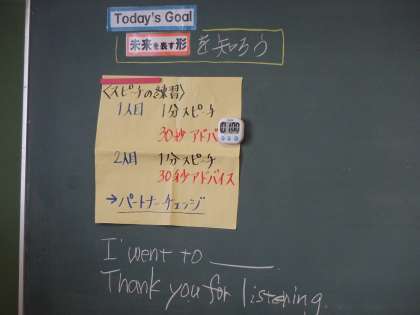 Today's Goal
未来を表す形を知ろう
〈スピーチの練習〉
1人目 1分スピーチ
30秒アドバ
0100
2人目 1分スピーチ
30秒アドバイス
→パートナーチェンジ
I went to ____
Thank you for listening.